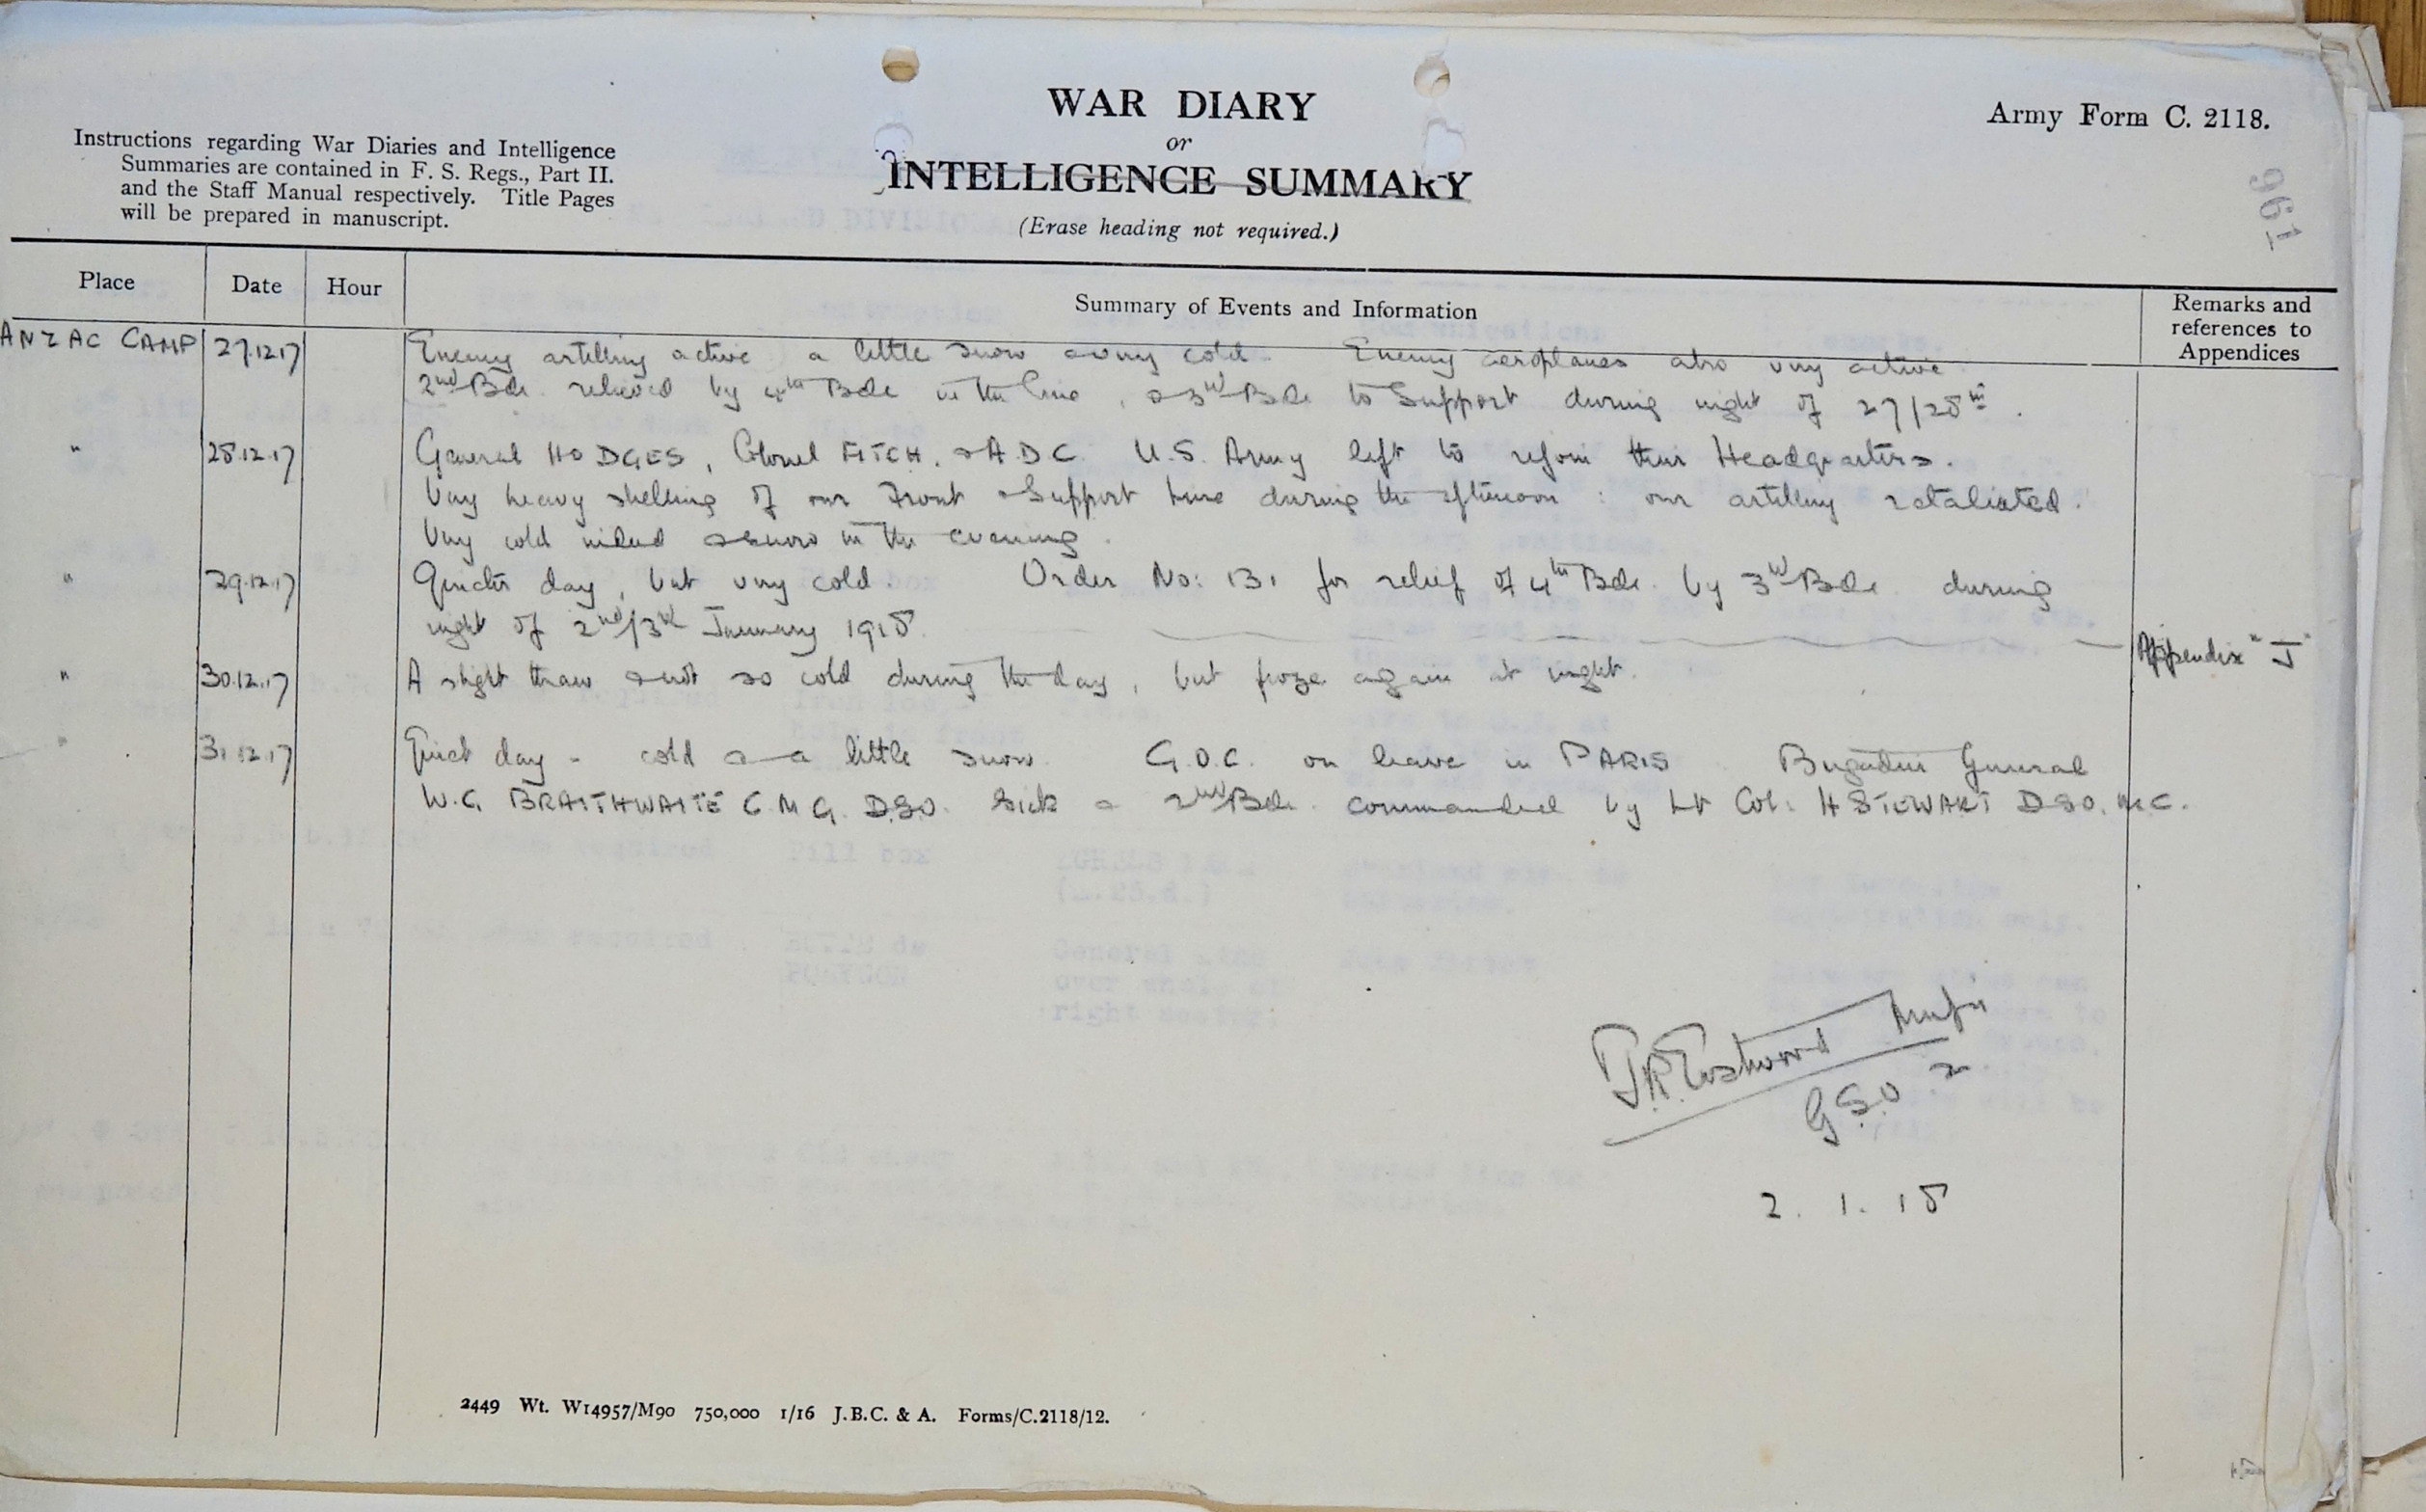 WAR DIARY
or
INTELLIGENCE SUMMARY
(Erase heading not required.)
Army Form C. 2118.
Instructions regarding War Diaries and Intelligence
Summaries are contained in F. S. Regs., Part II.
and the Staff Manual respectively. Title Pages
will be prepared in manuscript.
196
Place Date Hour Summary of Events and Information Remarks and
references to
Appendices
ANZAC CAMP 27.12.17 Enemy artillery active a little snow & very cold. Enemy aeroplanes also very active.
2nd Bde. relieved by 4th Bde in the line, & 3rd Bde to Support during night of 27/28th.
" 28.12.17 General HODGES, Colonel FITCH, & A.D.C. U.S. Army left to rejoin their Headquarters.
Very heavy shelling of our Front & Support line during the afternoon : our artillery retaliated.
Very cold indeed & snow in the evening.
" 29.12.17 Quieter day, but very cold. Order No: 131 for relief of 4th Bde. by 3rd Bde. during
night of 2nd/3rd January 1918. Appendix "J"
" 30.12.17 A slight thaw & not so cold during the day, but froze again at night.
" 31.12.17 Quiet day - cold & a little snow. G.O.C. on leave in PARIS. Brigadier General
W.G. BRAITHWAITE C.M.G. D.S.O. sick & 2nd Bde. commanded by Lt Col: H STEWART D.S.O. M.C.
T.R. Eastwood Major
G.S.O 2
2. 1. 18
2449 Wt. W14957/M90 750,000 1/16 J.B.C. & A. Forms/C.2118/12.